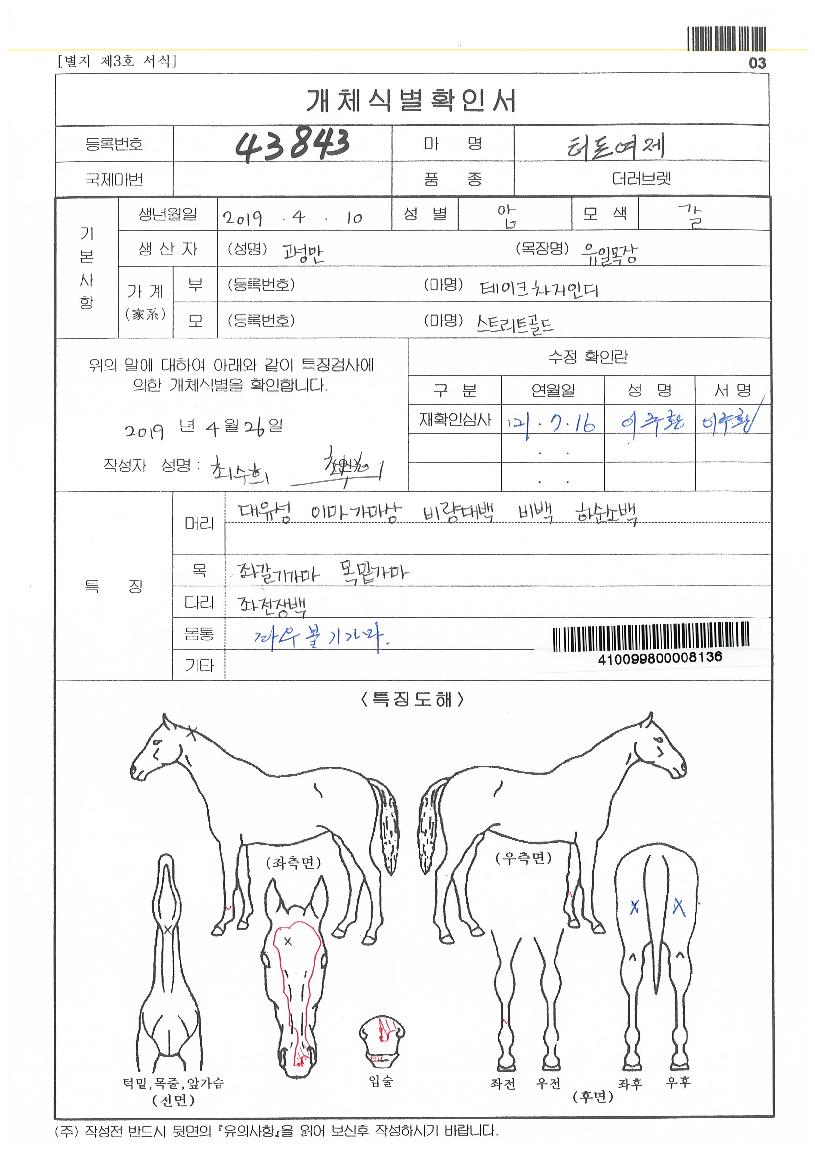 03
[별지 제3호 서식]
개체식별확인서
등록번호 43843 마 명 터트여제
국제마번 품 종 더러브렛
기본사항
생년월일 2019 . 4 . 10 성 별 암 모 색 갈
생 산 자 (성명) 고성만 (목장명) 유일목장
가 계 (家系)
부 (등록번호) (마명) 테이크차지인디
모 (등록번호) (마명) 스트리트골드
위의 말에 대하여 아래와 같이 특징검사에
의한 개체식별을 확인합니다.
2019 년 4 월 26 일
작성자 성명 : 최수희
수정 확인란
구 분 연월일 성 명 서 명
재확인심사 '21 . 7 . 16 이주환 이주환
. .
. .
특 징
머리 대유성 이마가마상 비량대백 비백 하순소백
목 좌갈기가마 목밑가마
다리 좌전장백
몸통 좌우볼기가마.
기타
410099800008136
<특징도해>
(좌측면) (우측면)
턱밑,목줄,앞가슴
(선면)
입술
좌전 우전 좌후 우후
(후면)
(주) 작성전 반드시 뒷면의 『유의사항』을 읽어 보신후 작성하시기 바랍니다.